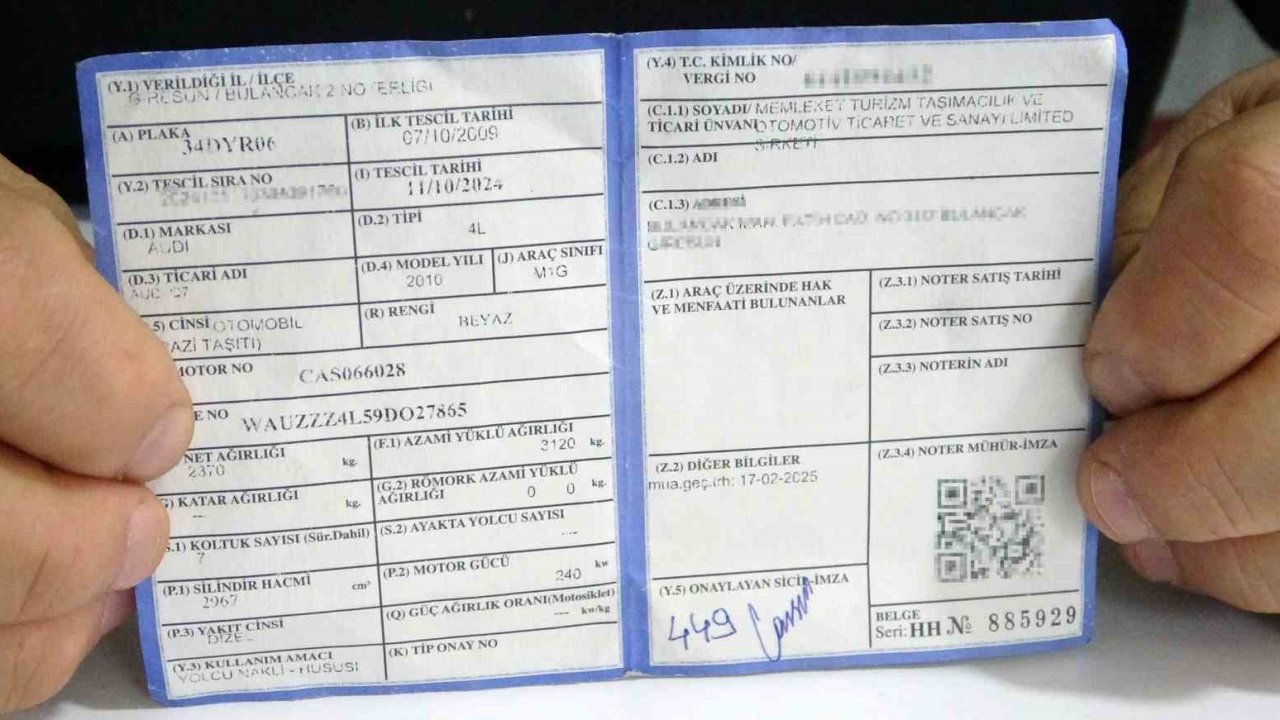 (Y.1) VERİLDİĞİ İL / İLÇE
GİRESUN / BULANCAK 2 NOTERLİĞİ
(A) PLAKA
34DYR06
(B) İLK TESCİL TARİHİ
07/10/2009
(Y.2) TESCİL SIRA NO
(I) TESCİL TARİHİ
11/10/2024
(D.1) MARKASI
AUDI
(D.2) TİPİ
4L
(D.3) TİCARİ ADI
(D.4) MODEL YILI
2010
(J) ARAÇ SINIFI
M1G
.5) CİNSİ OTOMOBİL
AZİ TAŞITI)
(R) RENGİ
BEYAZ
MOTOR NO
CAS066028
E NO
WAUZZZ4L59DO27865
NET AĞIRLIĞI
2370 kg.
(F.1) AZAMİ YÜKLÜ AĞIRLIĞI
3120 kg.
) KATAR AĞIRLIĞI
--- kg.
(G.2) RÖMORK AZAMİ YÜKLÜ
AĞIRLIĞI 0 0 kg.
.1) KOLTUK SAYISI (Sür.Dahil)
7
(S.2) AYAKTA YOLCU SAYISI
---
(P.1) SİLİNDİR HACMİ
2967 cm³
(P.2) MOTOR GÜCÜ
240 kw
(P.3) YAKIT CİNSİ
DİZEL
(Q) GÜÇ AĞIRLIK ORANI(Motosiklet)
--- kw/kg
(Y.3) KULLANIM AMACI
YOLCU NAKLİ - HUSUSİ
(K) TİP ONAY NO
(Y.4) T.C. KİMLİK NO/
VERGİ NO
(C.1.1) SOYADI/ MEMLEKET TURİZM TAŞIMACILIK VE
TİCARİ ÜNVANI OTOMOTİV TİCARET VE SANAYİ LİMİTED
ŞİRKETİ
(C.1.2) ADI
(C.1.3) ADRESİ
(Z.1) ARAÇ ÜZERİNDE HAK
VE MENFAATİ BULUNANLAR
(Z.3.1) NOTER SATIŞ TARİHİ
(Z.3.2) NOTER SATIŞ NO
(Z.3.3) NOTERİN ADI
(Z.2) DİĞER BİLGİLER
mua.geç.trh: 17-02-2025
(Z.3.4) NOTER MÜHÜR-İMZA
(Y.5) ONAYLAYAN SİCİL-İMZA
449
BELGE
Seri: HH № 885929